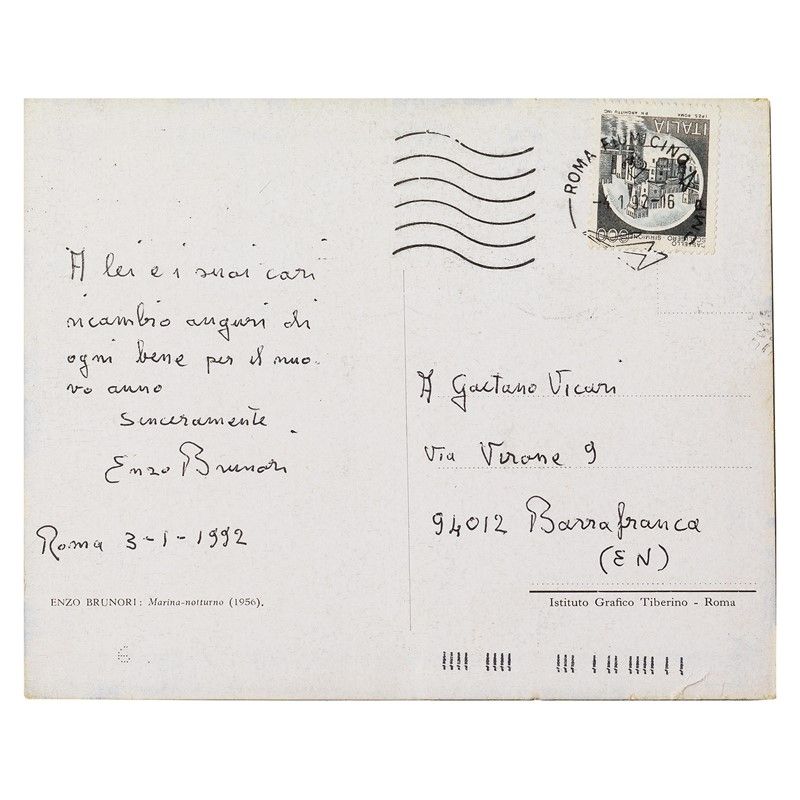 A lei e i suoi cari
ricambio auguri di
ogni bene per il nuo-
vo anno
Sinceramente
Enzo Brunori
Roma 3-1-1992
ENZO BRUNORI: Marina-notturno (1956).
ROMA FIUMICINO
4.1.92-16
ITALIA
A Gaetano Vicari
Via Virone 9
94012 Barrafranca
(EN)
Istituto Grafico Tiberino - Roma